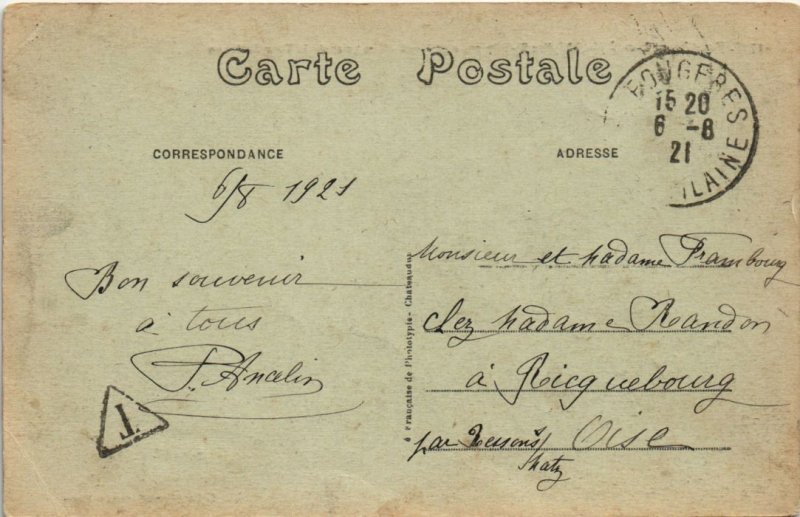 Carte Postale
FOUGERES
15 20
6 -8
21
ILAINE
CORRESPONDANCE
ADRESSE
6/8 1921
Bon souvenir
à tous
P. Ancelin
T
Française de Phototypie - Chateaudun
Monsieur et Madame Frambourg
chez Madame Randon
à Ricquebourg
par Ressons s/ Oise
Matz